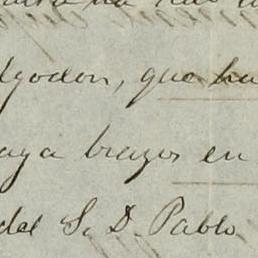 lgodon, que ha
aya brazos en
del S. D. Pablo